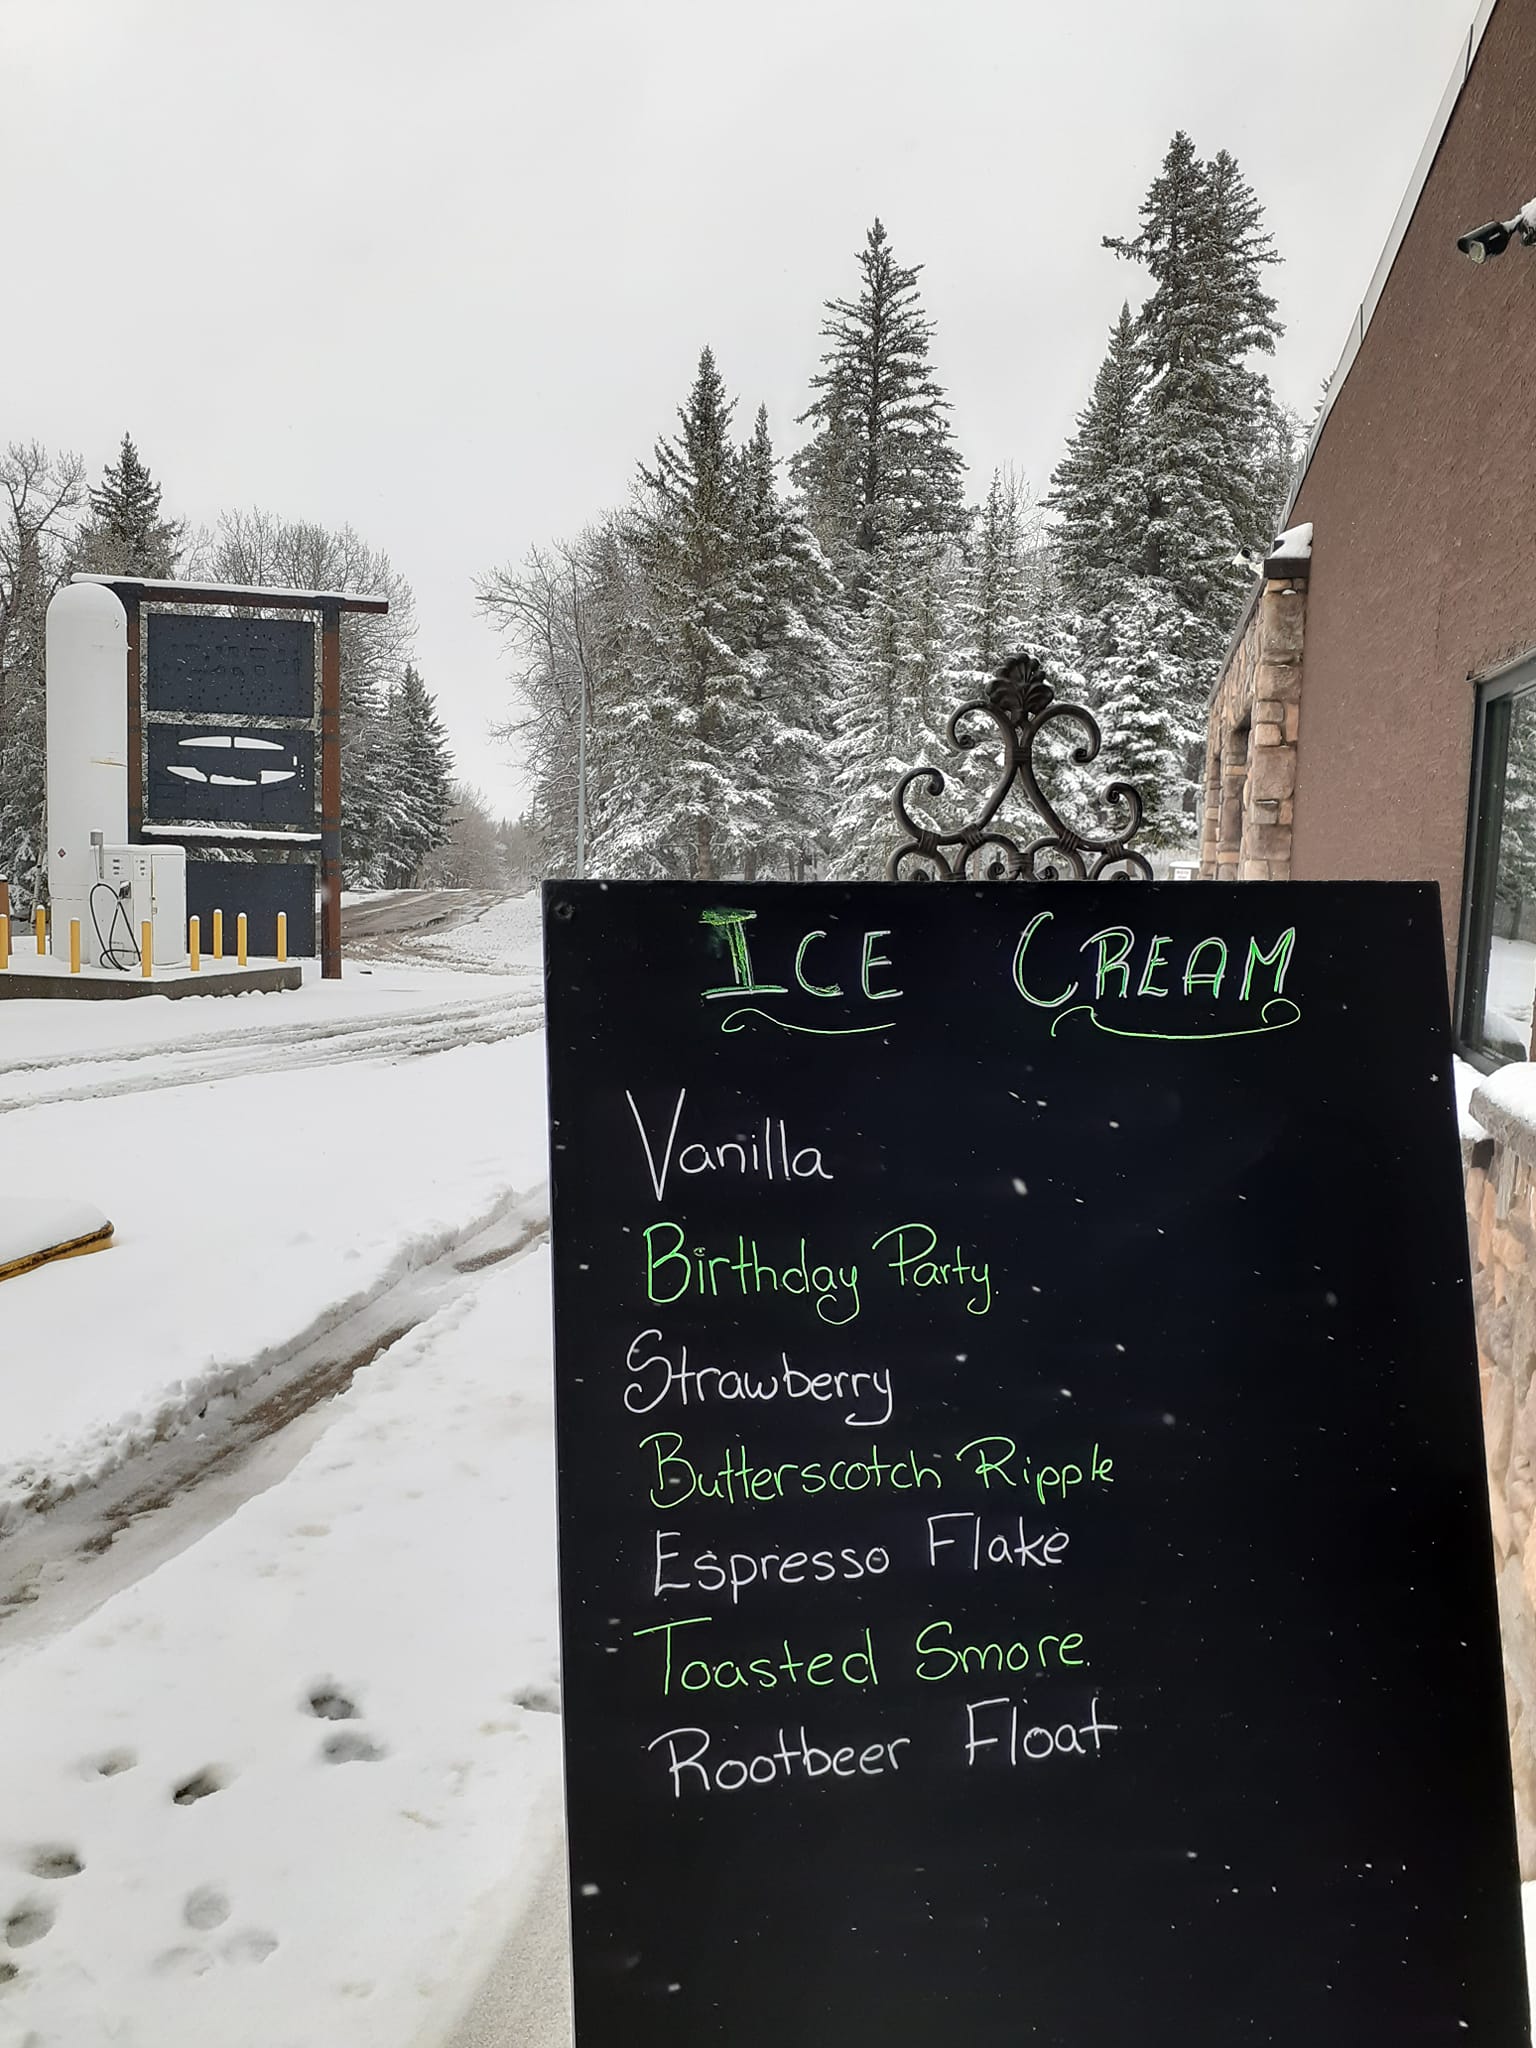 ICE CREAM
Vanilla
Birthday Party
Strawberry
Butterscotch Ripple
Espresso Flake
Toasted Smore
Rootbeer Float